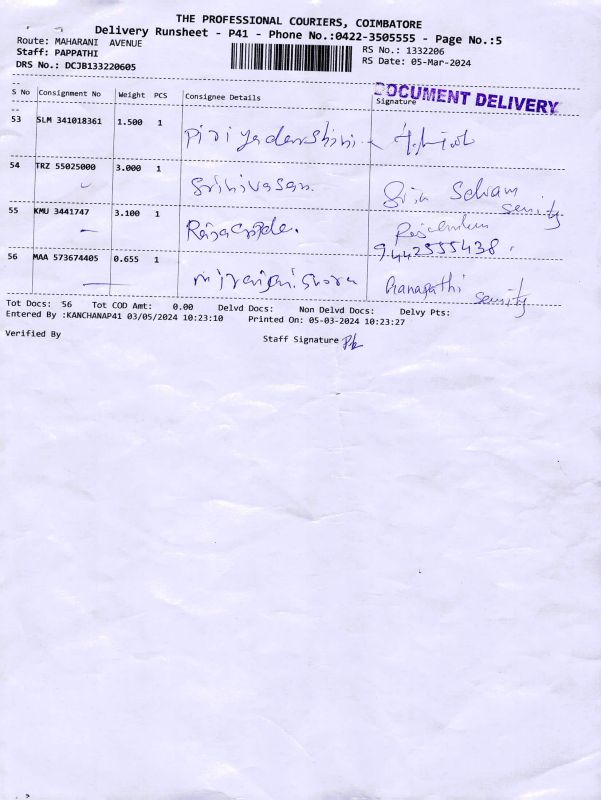 THE PROFESSIONAL COURIERS, COIMBATORE
Delivery Runsheet - P41 - Phone No.:0422-3505555 - Page No.:5
Route: MAHARANI AVENUE
RS No.: 1332206
Staff: PAPPATHI
RS Date: 05-Mar-2024
DRS No.: DCJB133220605
DOCUMENT DELIVERY
S No Consignment No Weight PCS Consignee Details Signature
53 SLM 341018361 1.500 1
54 TRZ 55025000 3.000 1 Srinivasan. Selvam
security
55 KMU 3441747 3.100 1
9442555438.
56 MAA 573674405 0.655 1 Ganapathi
security
Tot Docs: 56 Tot COD Amt: 0.00 Delvd Docs: Non Delvd Docs: Delvy Pts:
Entered By :KANCHANAP41 03/05/2024 10:23:10 Printed On: 05-03-2024 10:23:27
Verified By Staff Signature